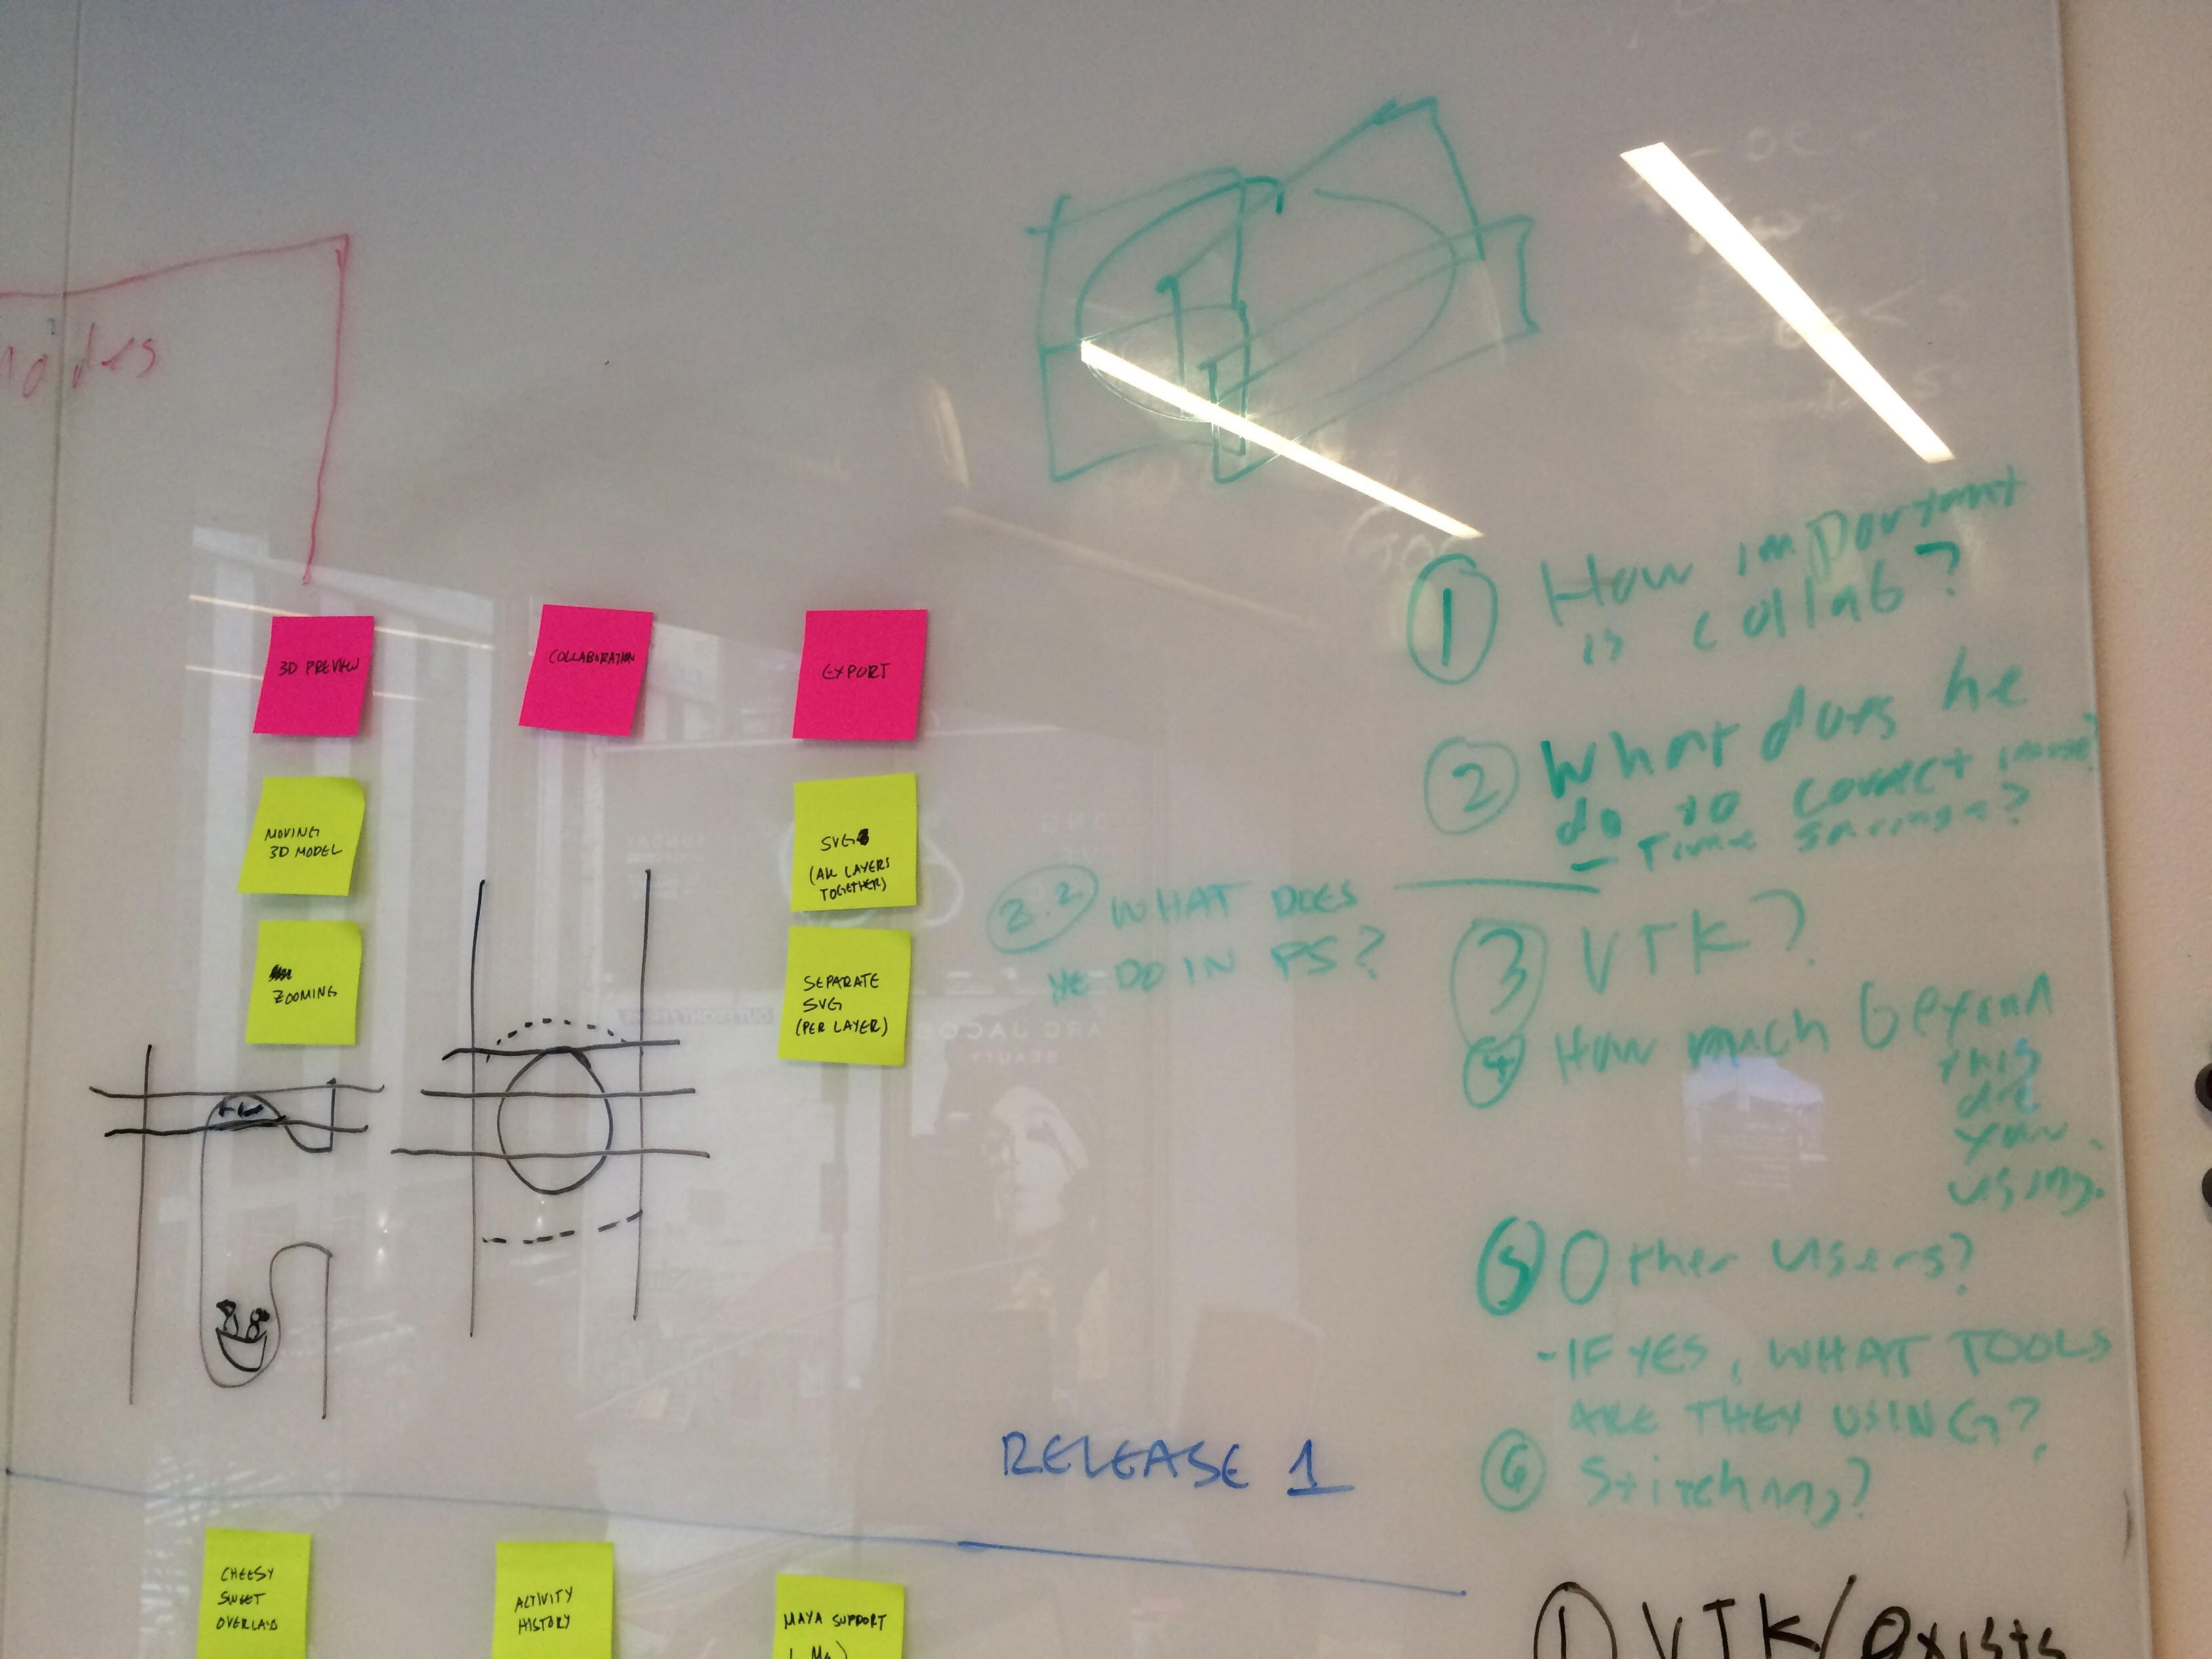 3D PREVIEW
COLLABORATION
EXPORT
MOVING
3D MODEL
ZOOMING
SVG
(ALL LAYERS
TOGETHER)
SEPARATE
SVG
(PER LAYER)
① How important
is collab?
② What does he
do to correct image?
- Time savings?
2.2 WHAT DOES
HE DO IN PS?
③ VTK?
④ How much beyond
this
are
you
using.
⑤ Other users?
-IF YES, WHAT TOOLS
ARE THEY USING?
⑥ Stitching?
RELEASE 1
CHEESY
SWEET
OVERLAYS
ACTIVITY
HISTORY
MAYA SUPPORT
① VTK/exists